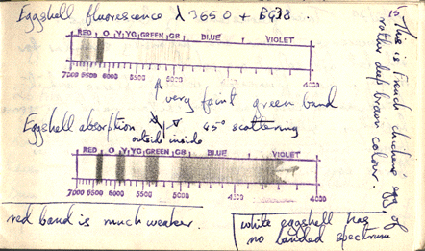 Eggshell fluorescence λ 3650 +
RED O Y YG GREEN GB BLUE VIOLET
7000 6500 6000 5500 5000 4500 4000
very faint green band
Eggshell absorption 45° scattering
outside inside
RED O Y YG GREEN GB BLUE VIOLET
7000 6500 6000 5500 5000 4500 4000
red band is much weaker
white eggshell has
no banded spectrum
This is French chicken's egg, of
rather deep brown colour.